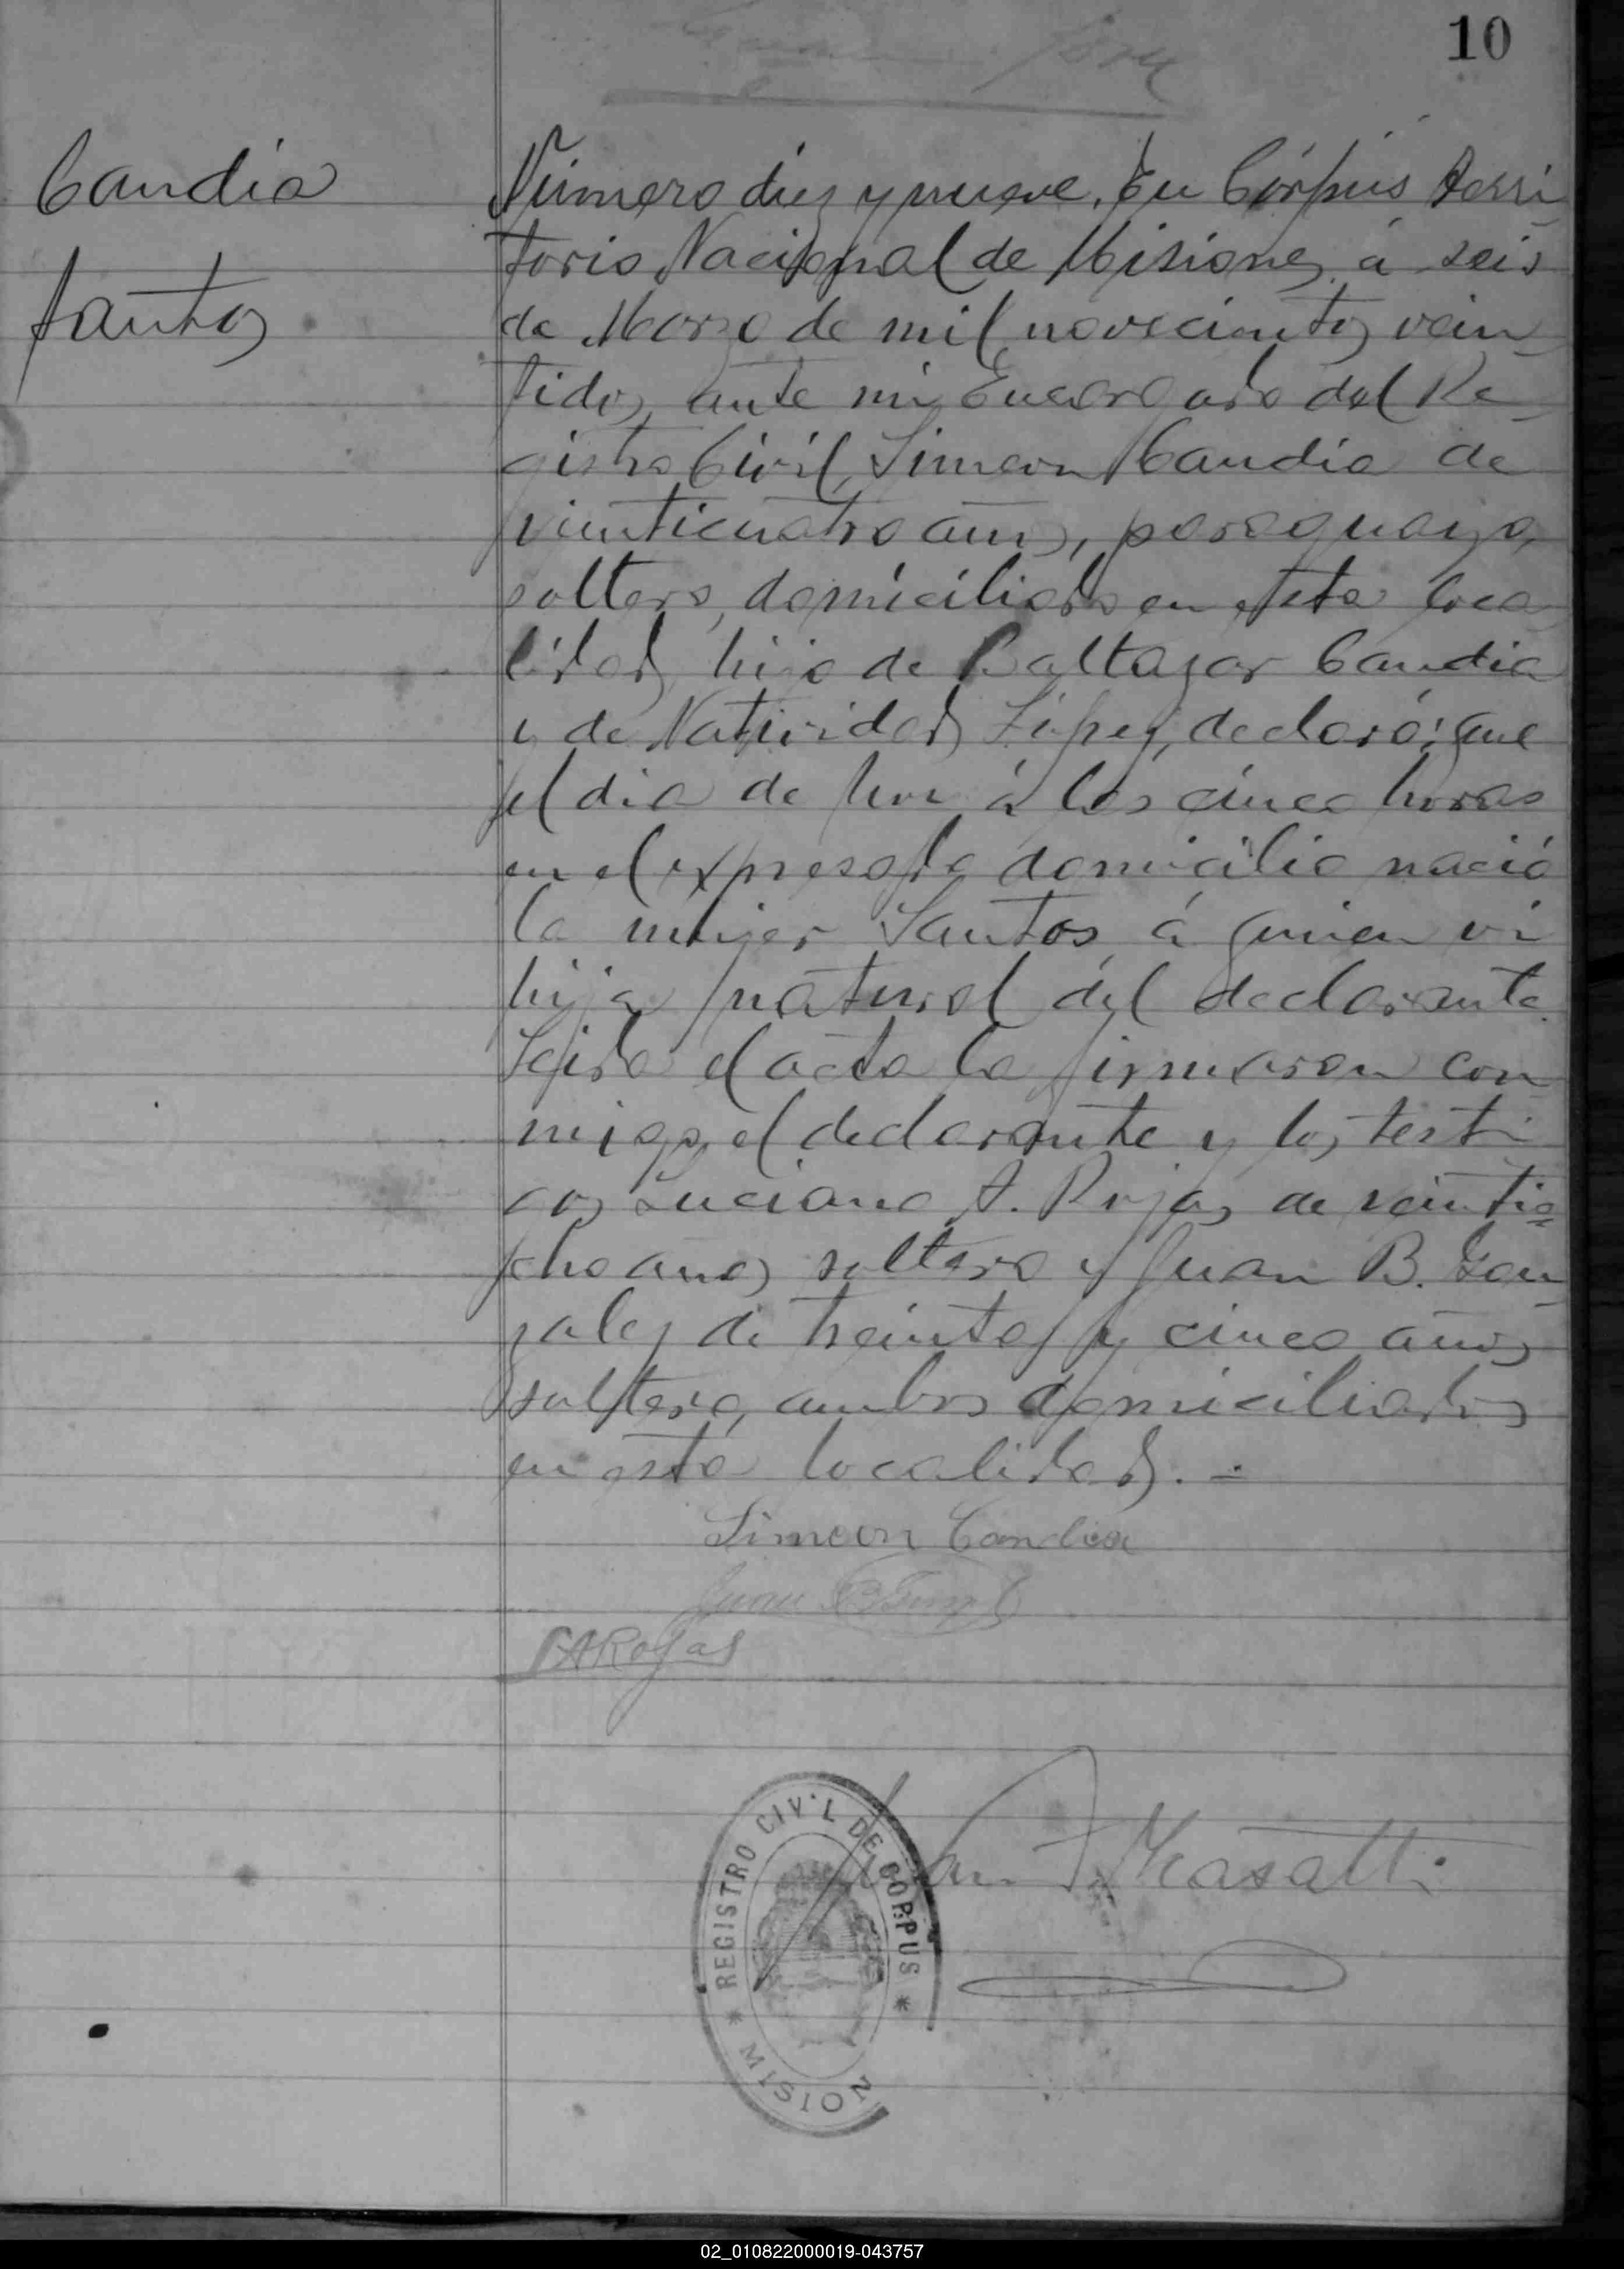 10
Candia
Santos
Número diez y nueve. En Córpus Terri
torio Nacional de Misiones á seis
de Marzo de mil novecientos vein
tidos, ante mi Encargado del Re
gistro Civil, Simeon Candia de
veinticuatro años, paraguayo,
soltero, domiciliado en esta loca
lidad, hijo de Baltazar Candia
y de Natividad López, declaró: que
el dia de hoy á las cinco horas
en el expresado domicilio nació
la mujer Santos, á quien vi
hija natural del declarante.
Leida el acta la firmaron con
migo, el declarante y los testi
gos Luciano A. Rojas de veintio
cho años soltero y Juan B. Gon
zalez de treinta y cinco años
soltero, ambos domiciliados
en esta localidad. -
Simeon Candia
Juan B
LARojas
REGISTRO CIVIL DE CORPUS
* MISION *
Juan F. Masatti
02_010822000019-043757